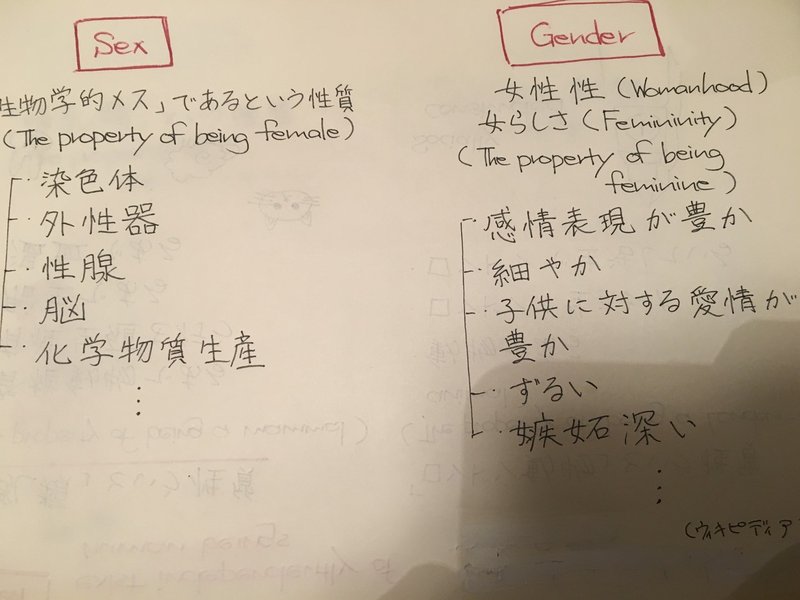 Sex
生物学的メス」であるという性質
(The property of being female)
・染色体
・外性器
・性腺
・脳
・化学物質生産
⋮
Gender
女性性 (Womanhood)
女らしさ (Femininity)
(The property of being
feminine)
・感情表現が豊か
・細やか
・子供に対する愛情が
豊か
・ずるい
・嫉妬深い
⋮
(ウィキペディア